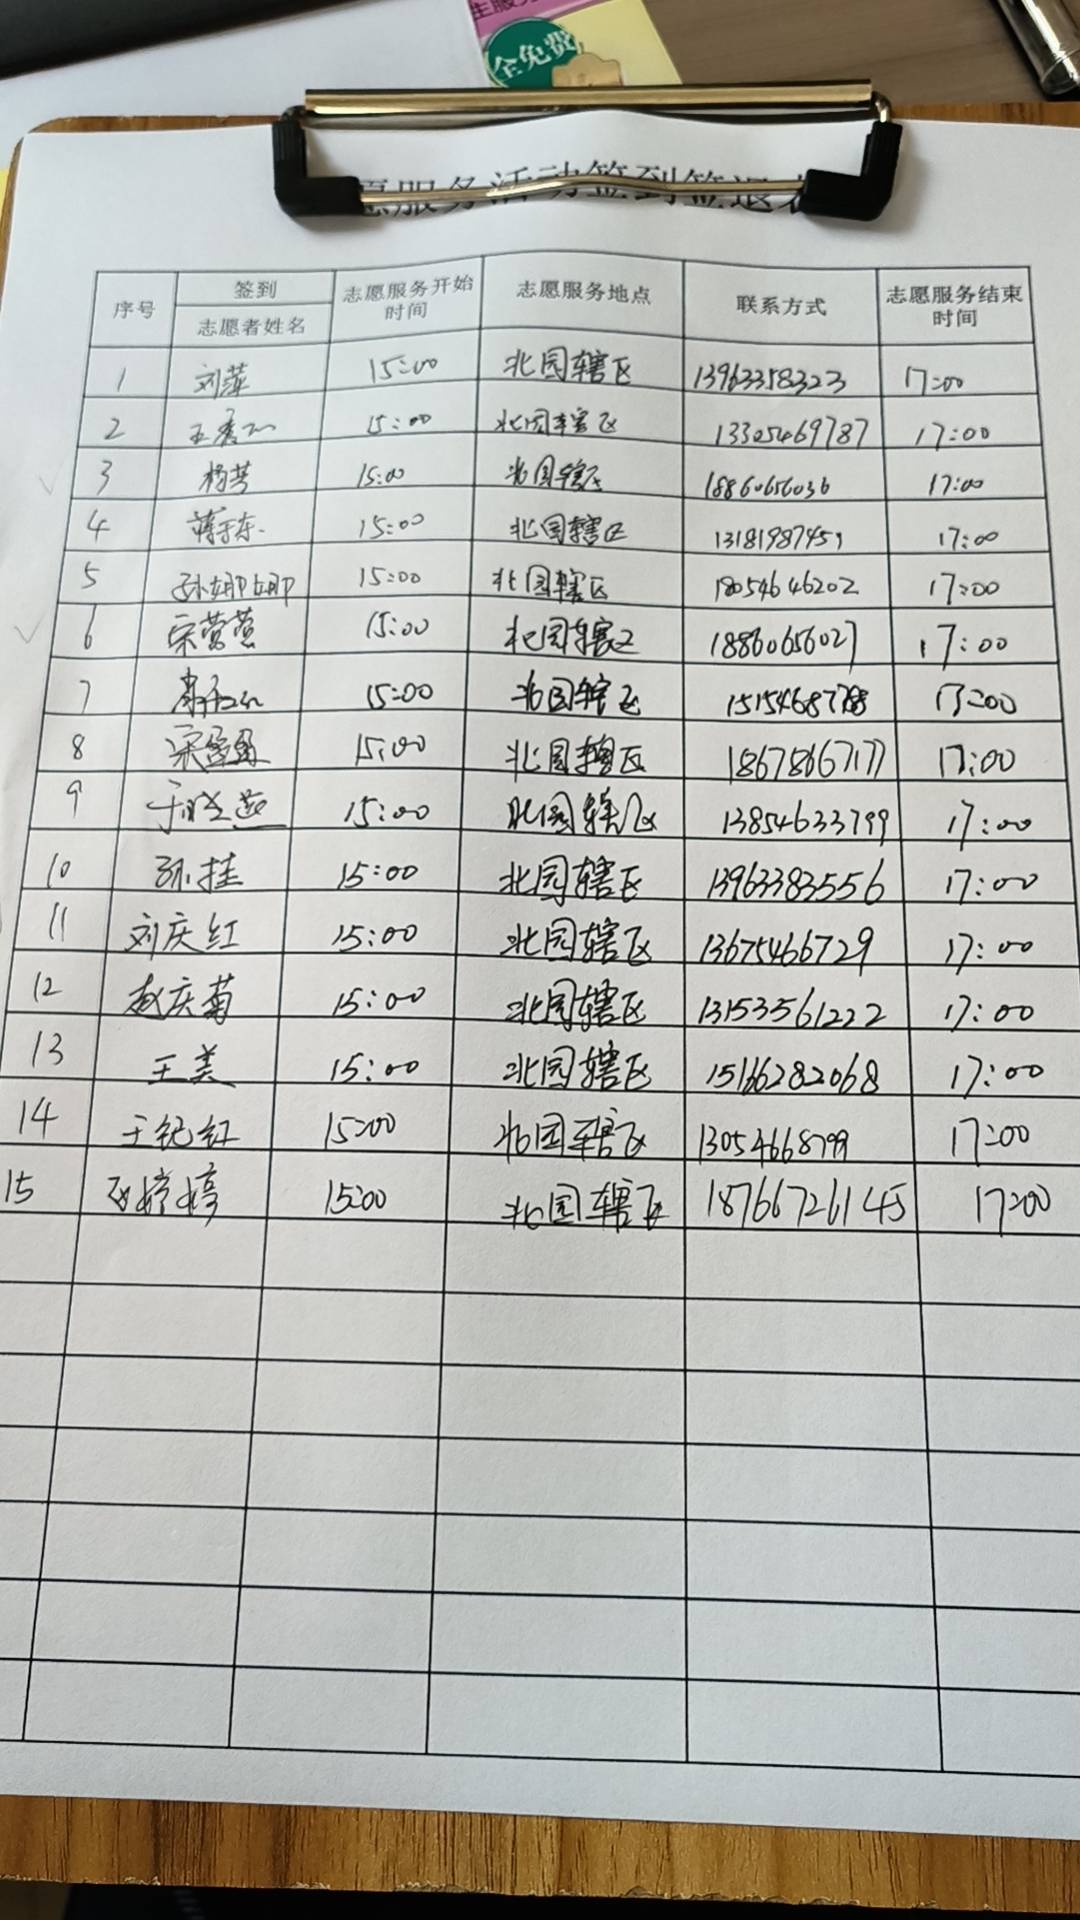 生服务
全免费
愿服务活动签到签退表
序号 签到 志愿者姓名 志愿服务开始时间 志愿服务地点 联系方式 志愿服务结束时间
1 刘萍 15:00 北园辖区 13963358323 17:00
2 15:00 北园辖区 13305469787 17:00
3 杨芳 15:00 北园辖区 18860656036 17:00
4 蒋于东 15:00 北园辖区 13181987451 17:00
5 孙娜娜 15:00 北园辖区 18054646202 17:00
6 宋莺莺 15:00 北园辖区 18860656027 17:00
7 15:00 北园辖区 17:00
8 宋 15:00 北园辖区 18678667177 17:00
9 于晓燕 15:00 北园辖区 13854633799 17:00
10 孙桂 15:00 北园辖区 13963383556 17:00
11 刘庆红 15:00 北园辖区 13675466729 17:00
12 赵庆菊 15:00 北园辖区 13153561222 17:00
13 王美 15:00 北园辖区 15166282068 17:00
14 王纪红 15:00 北园辖区 13054668799 17:00
15 婷婷 15:00 北园辖区 18766726145 17:00